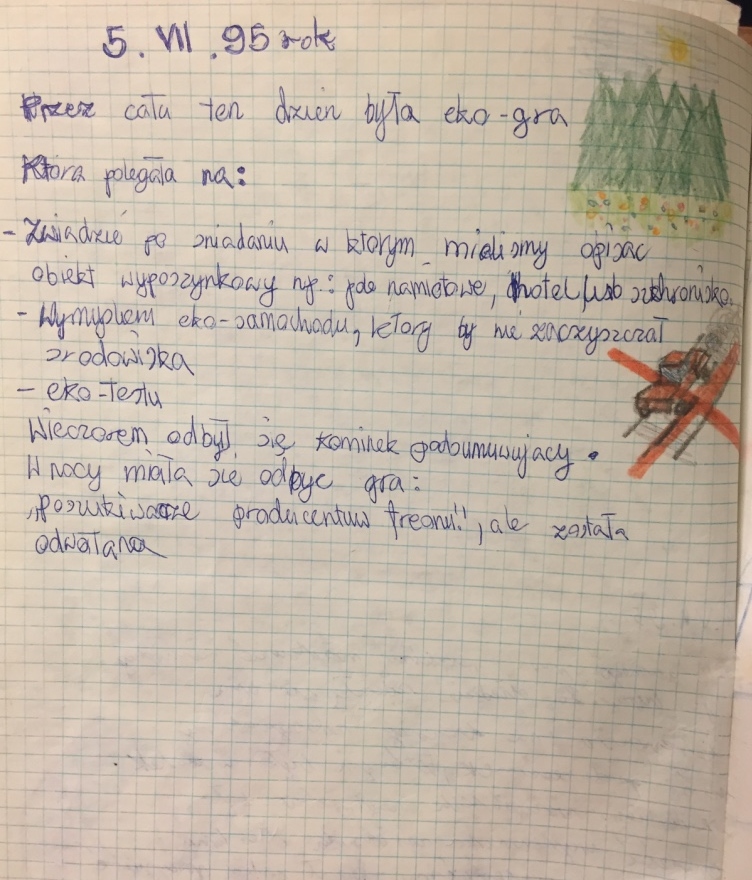 5. VII .95 rok
Przez cału ten dzień była eko-gra
Która polegała na:
- Zwiadzie po sniadaniu w ktorym mielismy opisac
obiekt wyposzynkowy np: pole namiotowe, hotel lub schronisko.
- Wymysleni eko-samochodu, ktory by nie zaczyszczał
srodowiska
- eko-testu
Wieczorem odbył się kominek podsumuwujacy.
W nocy miała sie odbyc gra:
"poszukiwacze producentuw freonu", ale została
odwołana